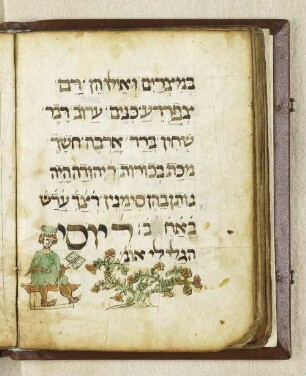 במצרים ואילו הן דם
צפרדע כנים ערוב דבר
שחין ברד ארבה חשך
מכת בכורות ר יהודה היה
נותן בהן סימנין דצך עדש
באחב ר יוסי
הגלילי אומ